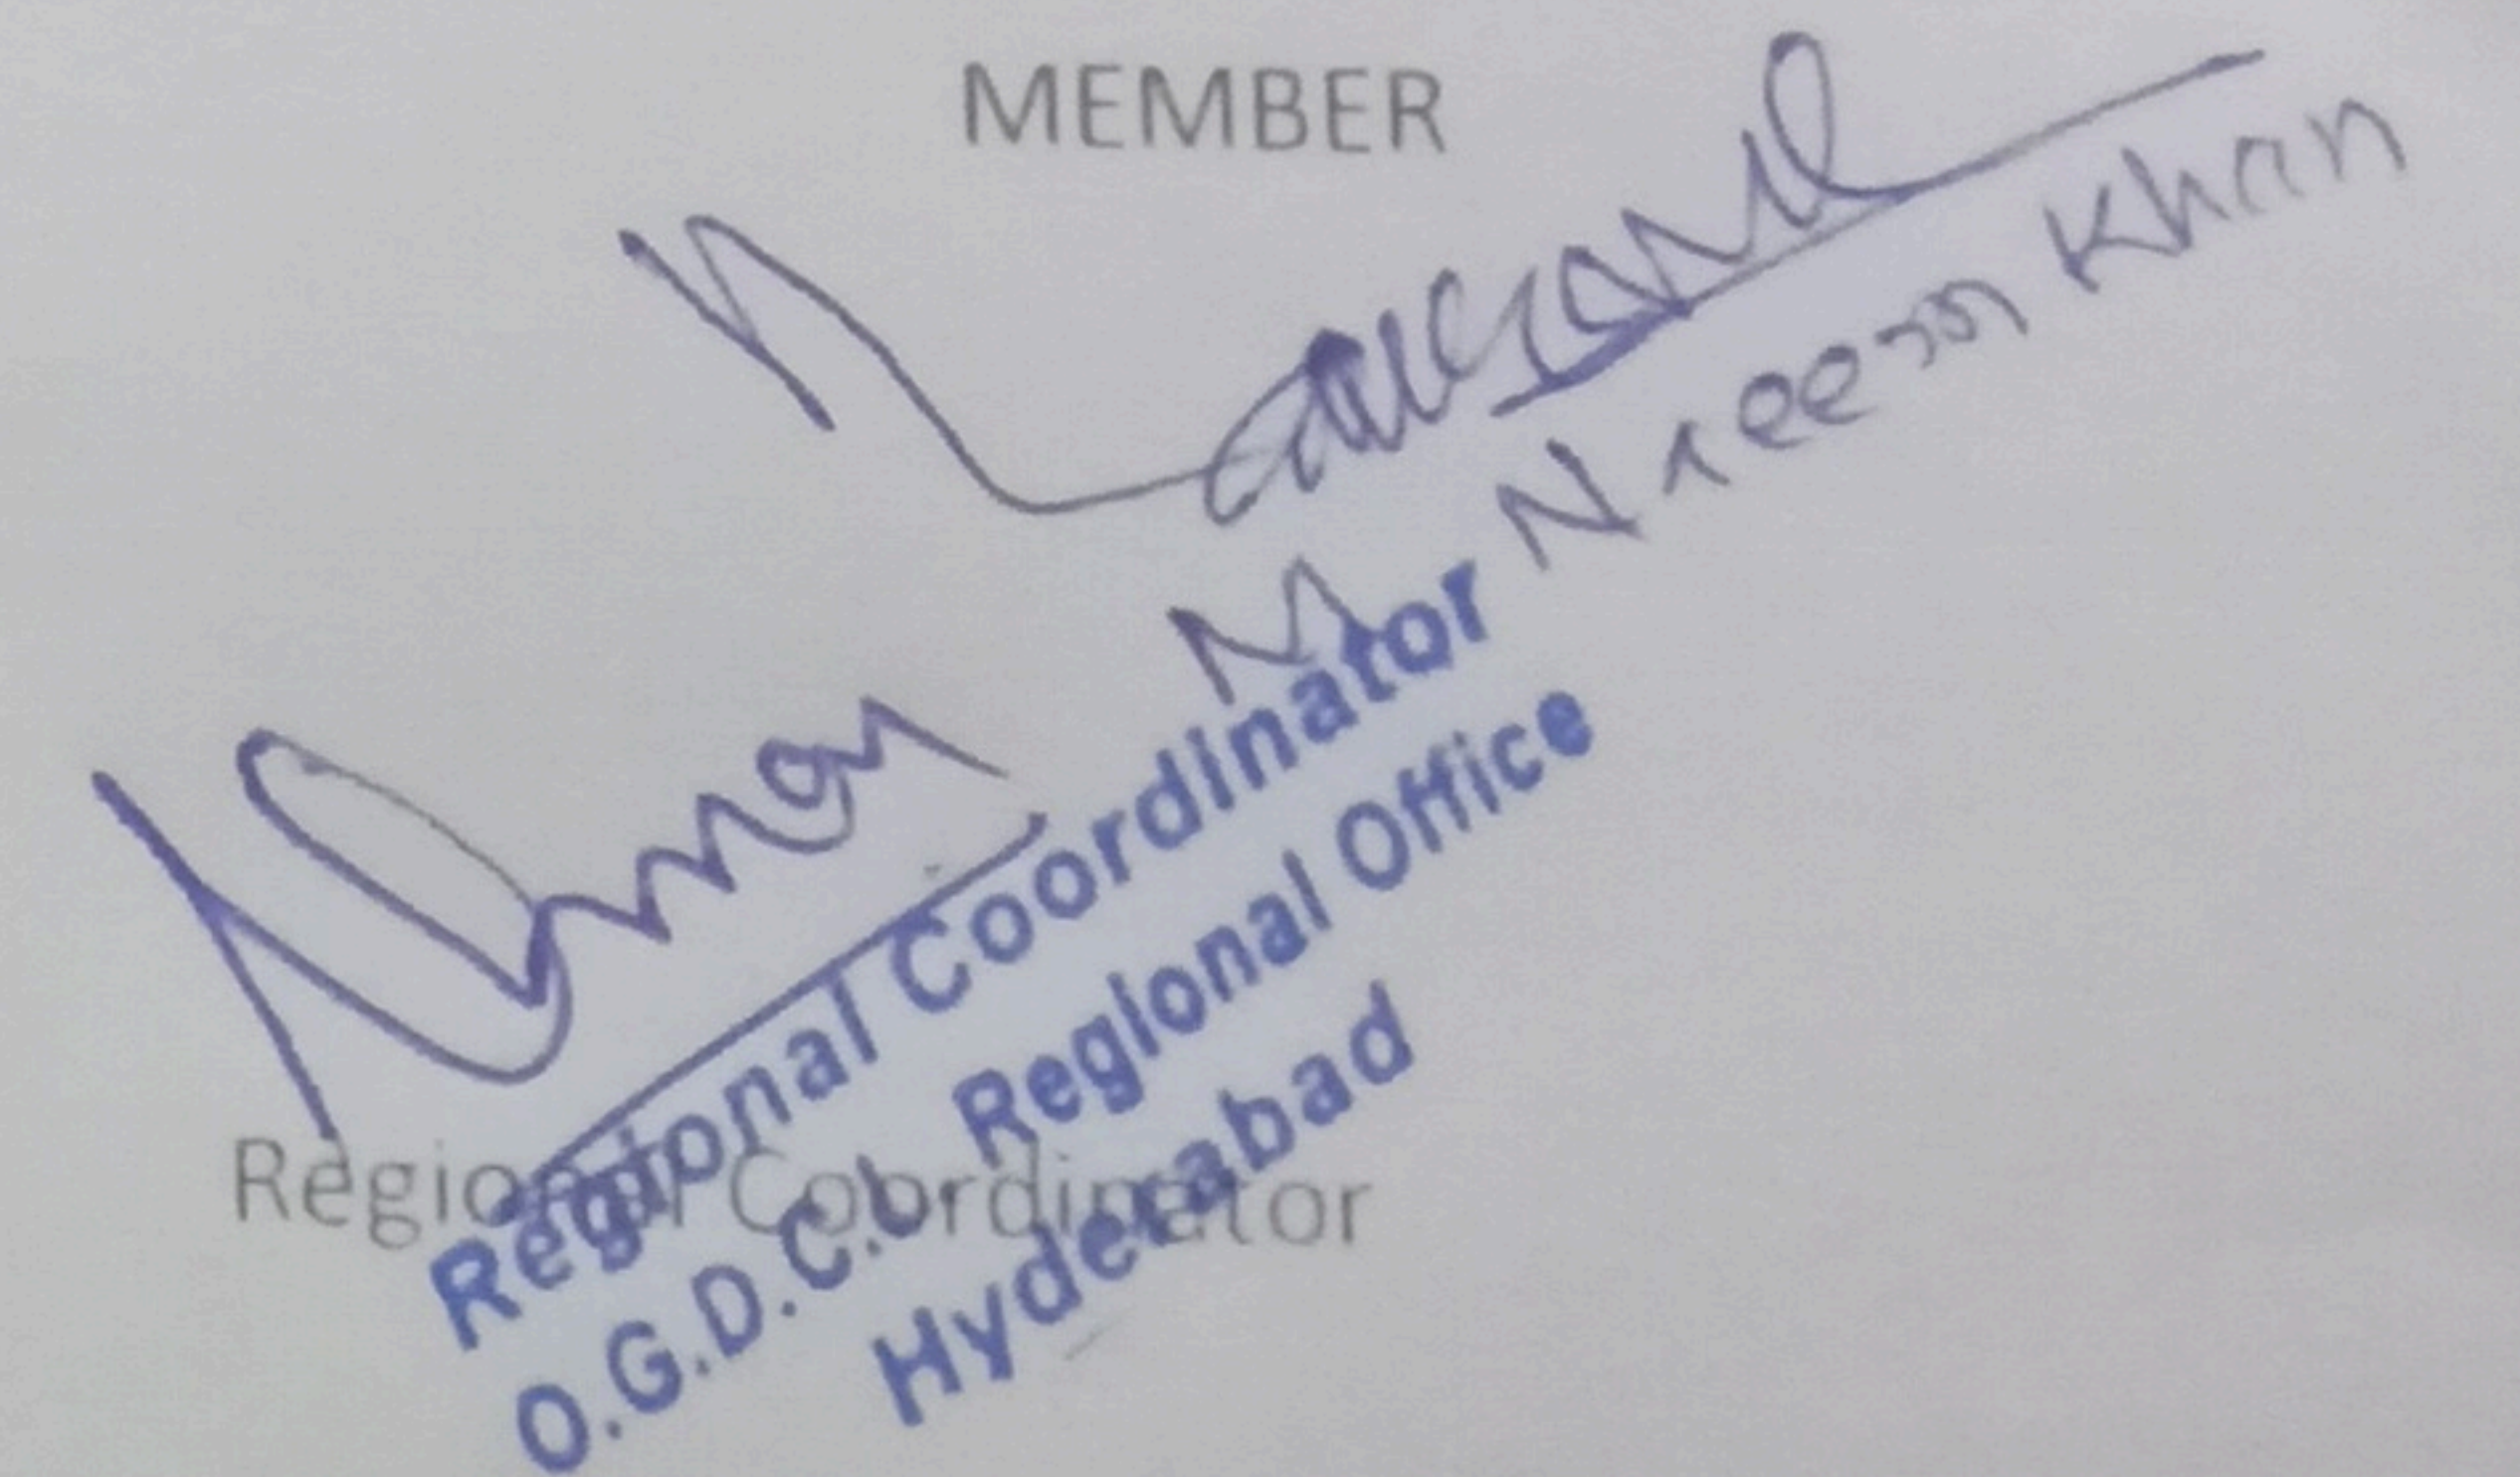 MEMBER
M Naeem Khan
Regional Coordinator
O.G.D.C.L Regional Office
Hyderabad
Regional Coordinator